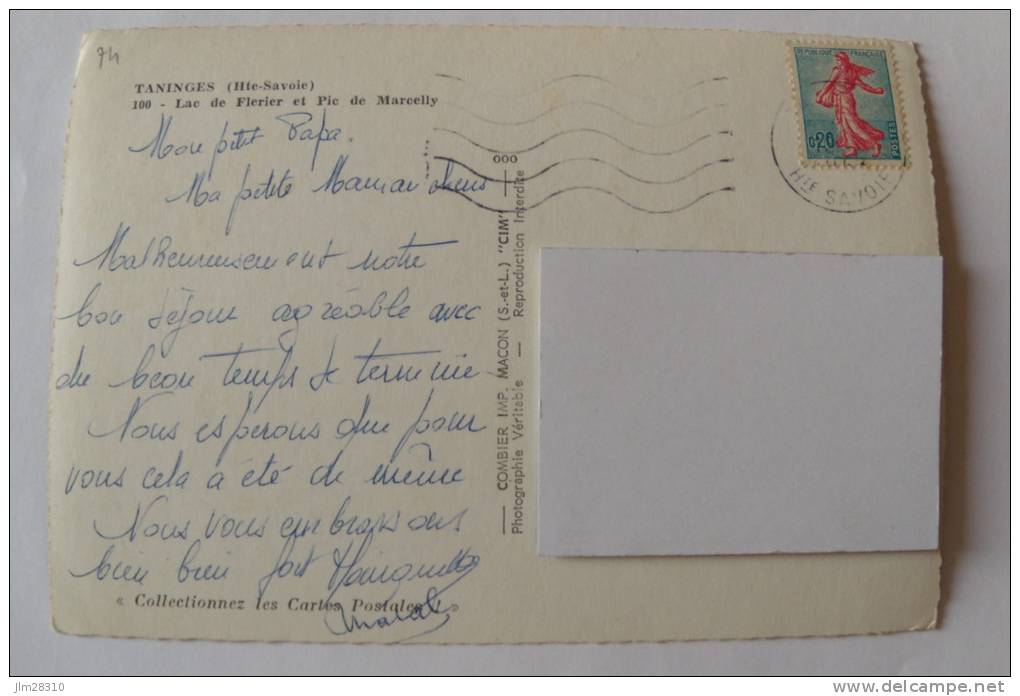 74
TANINGES (Hte-Savoie)
100 - Lac de Flerier et Pic de Marcelly
Mon petit Papa.
Ma petite Maman
Malheureusement notre
bon séjour agréable avec
du beau temps se termine
Nous esperons que pour
vous cela a été de même
Nous vous embrassons
bien bien fort
« Collectionnez les Cartes Postales ! »
ooo
COMBIER IMP. MACON (S.-et-L.) "CIM"
Photographie Véritable — Reproduction Interdite
REPUBLIQUE FRANÇAISE
0,20
POSTES
HTE SAVOIE
jlm28310
www.delcampe.net